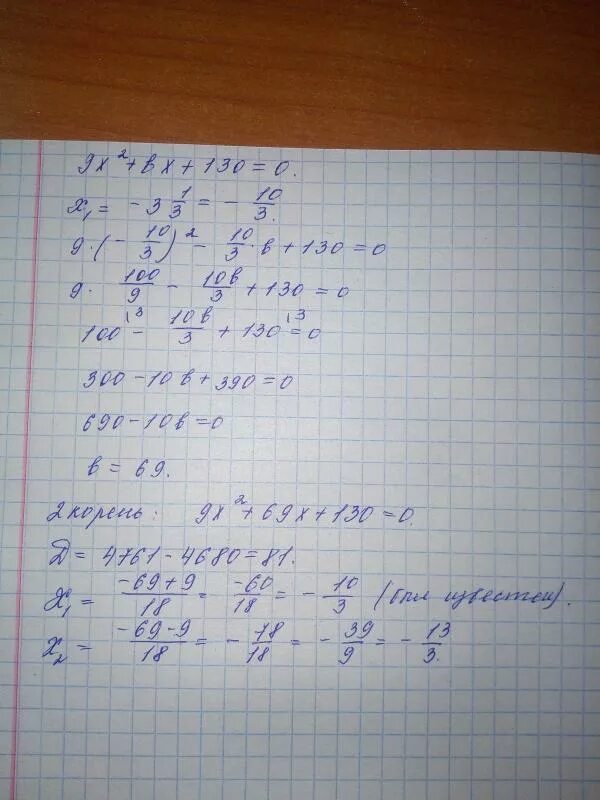 9x² + вx + 130 = 0.
x₁ = -3 1/3 = - 10/3.
9·(- 10/3)² - 10/3·в + 130 = 0
9· 100/9 - 10в/3 + 130 = 0
100 \3 - 10в/3 + 130 \3 = 0
300 - 10в + 390 = 0
690 - 10в = 0
в = 69.
2 корень: 9x² + 69x + 130 = 0.
Д = 4761 - 4680 = 81.
x₁ = -69+9/18 = -60/18 = - 10/3 (был известен).
x₂ = -69-9/18 = - 78/18 = - 39/9 = - 13/3.